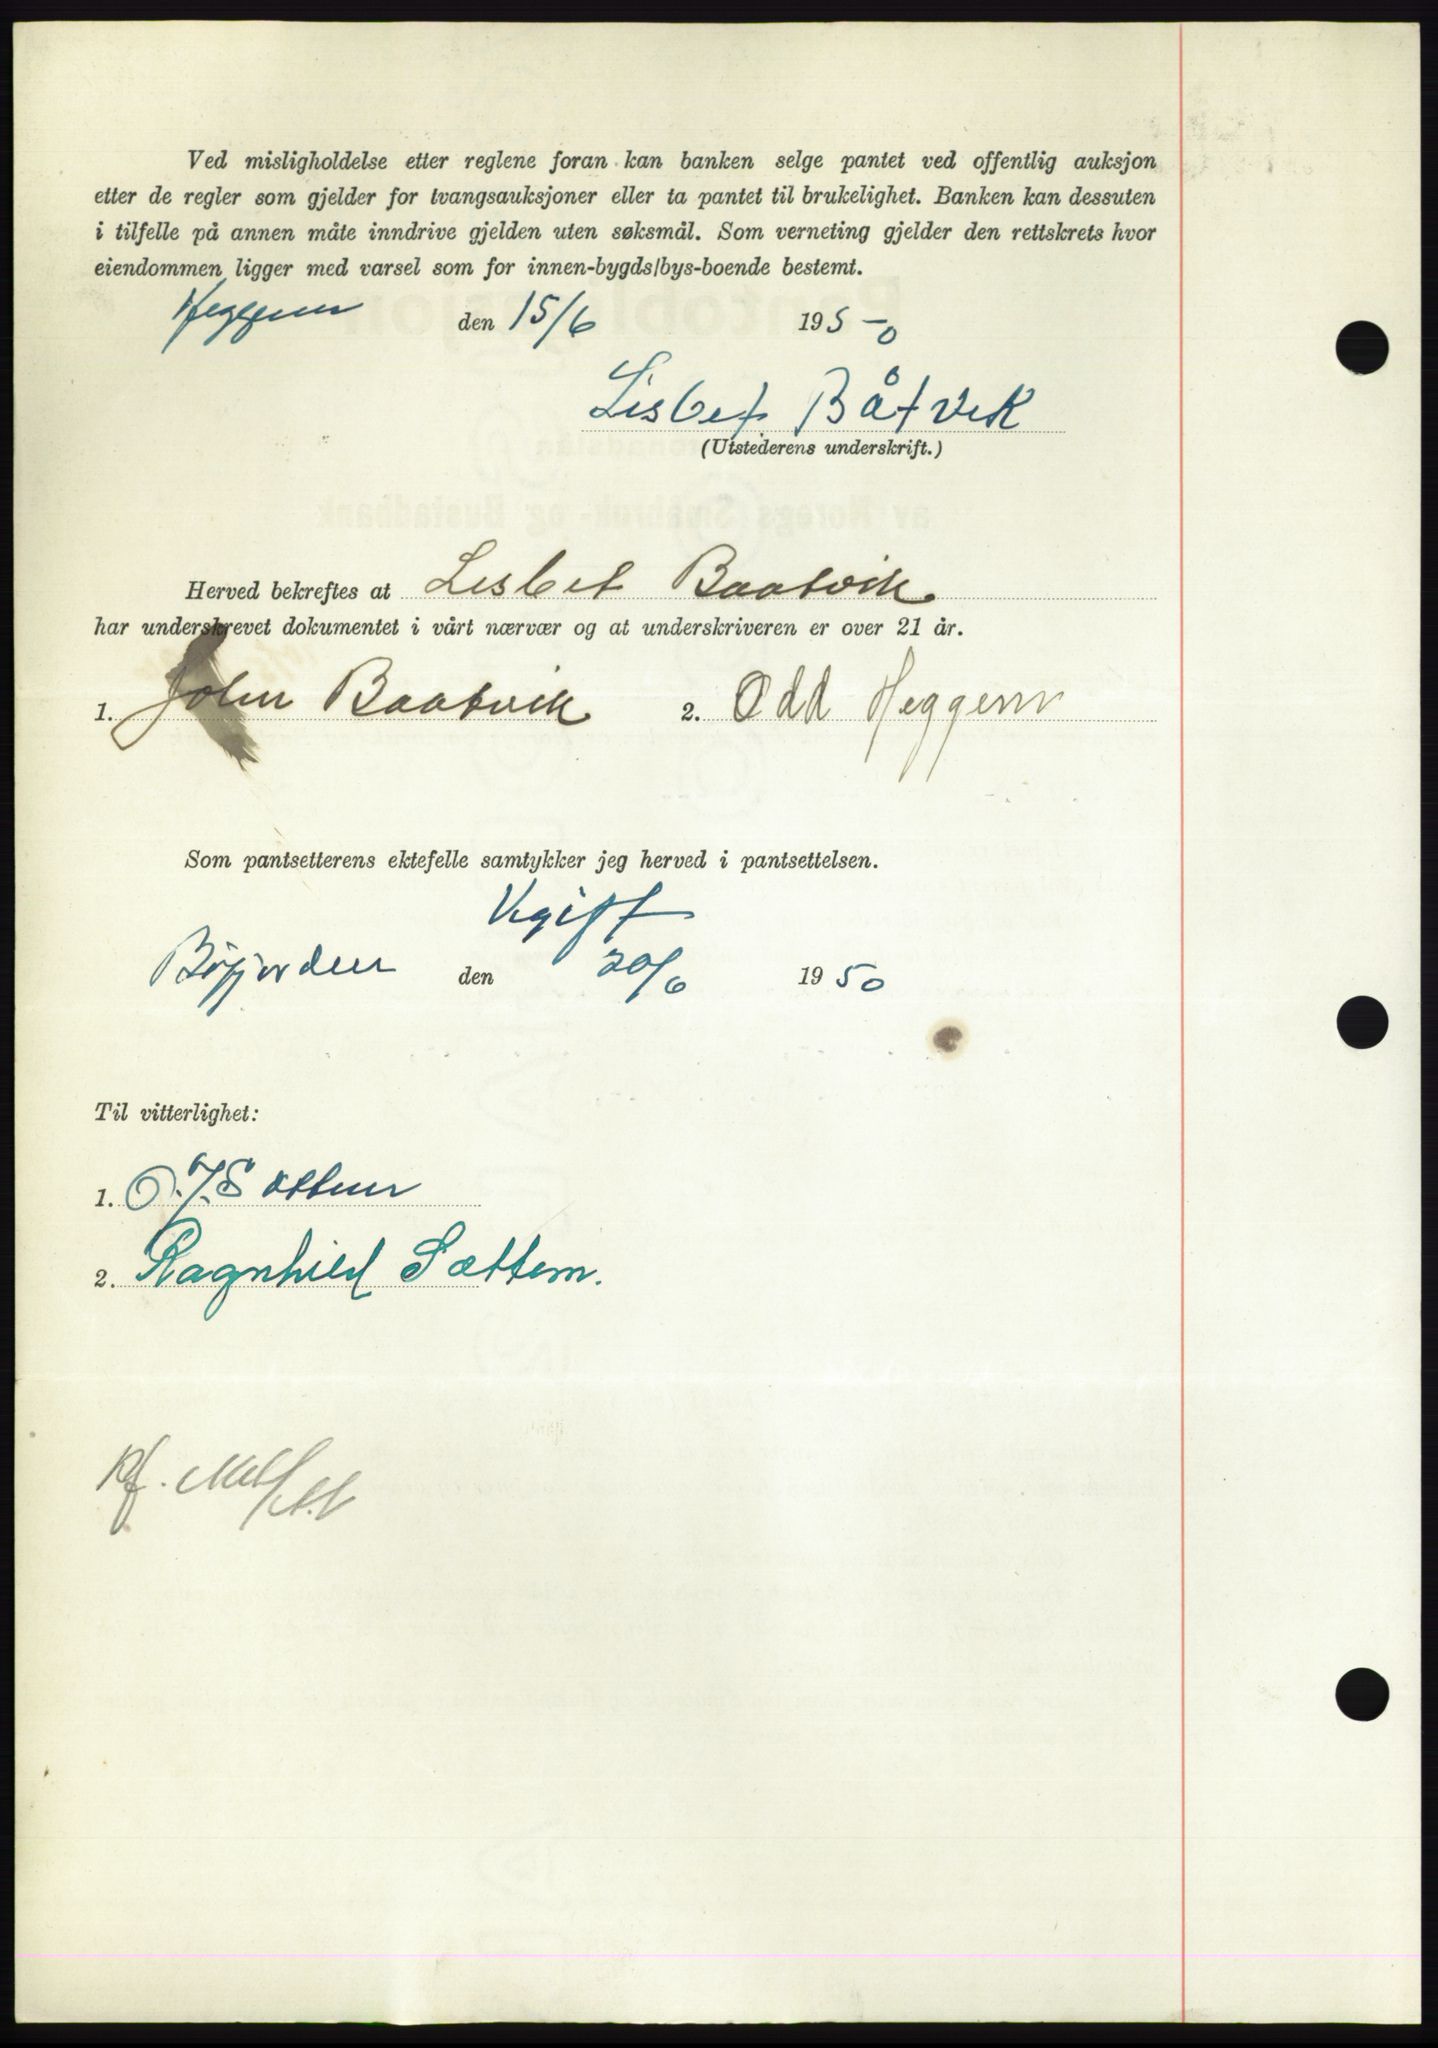 Ved misligholdelse etter reglene foran kan banken selge pantet ved offentlig auksjon
etter de regler som gjelder for tvangsauksjoner eller ta pantet til brukelighet. Banken kan dessuten
i tilfelle på annen måte inndrive gjelden uten søksmål. Som verneting gjelder den rettskrets hvor
eiendommen ligger med varsel som for innen-bygds/bys-boende bestemt.
Heggem den 15/6 195-0
Lisbet Båtvik
(Utstederens underskrift.)
Herved bekreftes at Lisbet Baatvik
har underskrevet dokumentet i vårt nærvær og at underskriveren er over 21 år.
1. John Baatvik 2. Odd Heggem
Som pantsetterens ektefelle samtykker jeg herved i pantsettelsen.
Ugift
Bøfjorden den 20/6 1950
Til vitterlighet:
1. O. J. Sættem
2. Ragnhild Sættem.